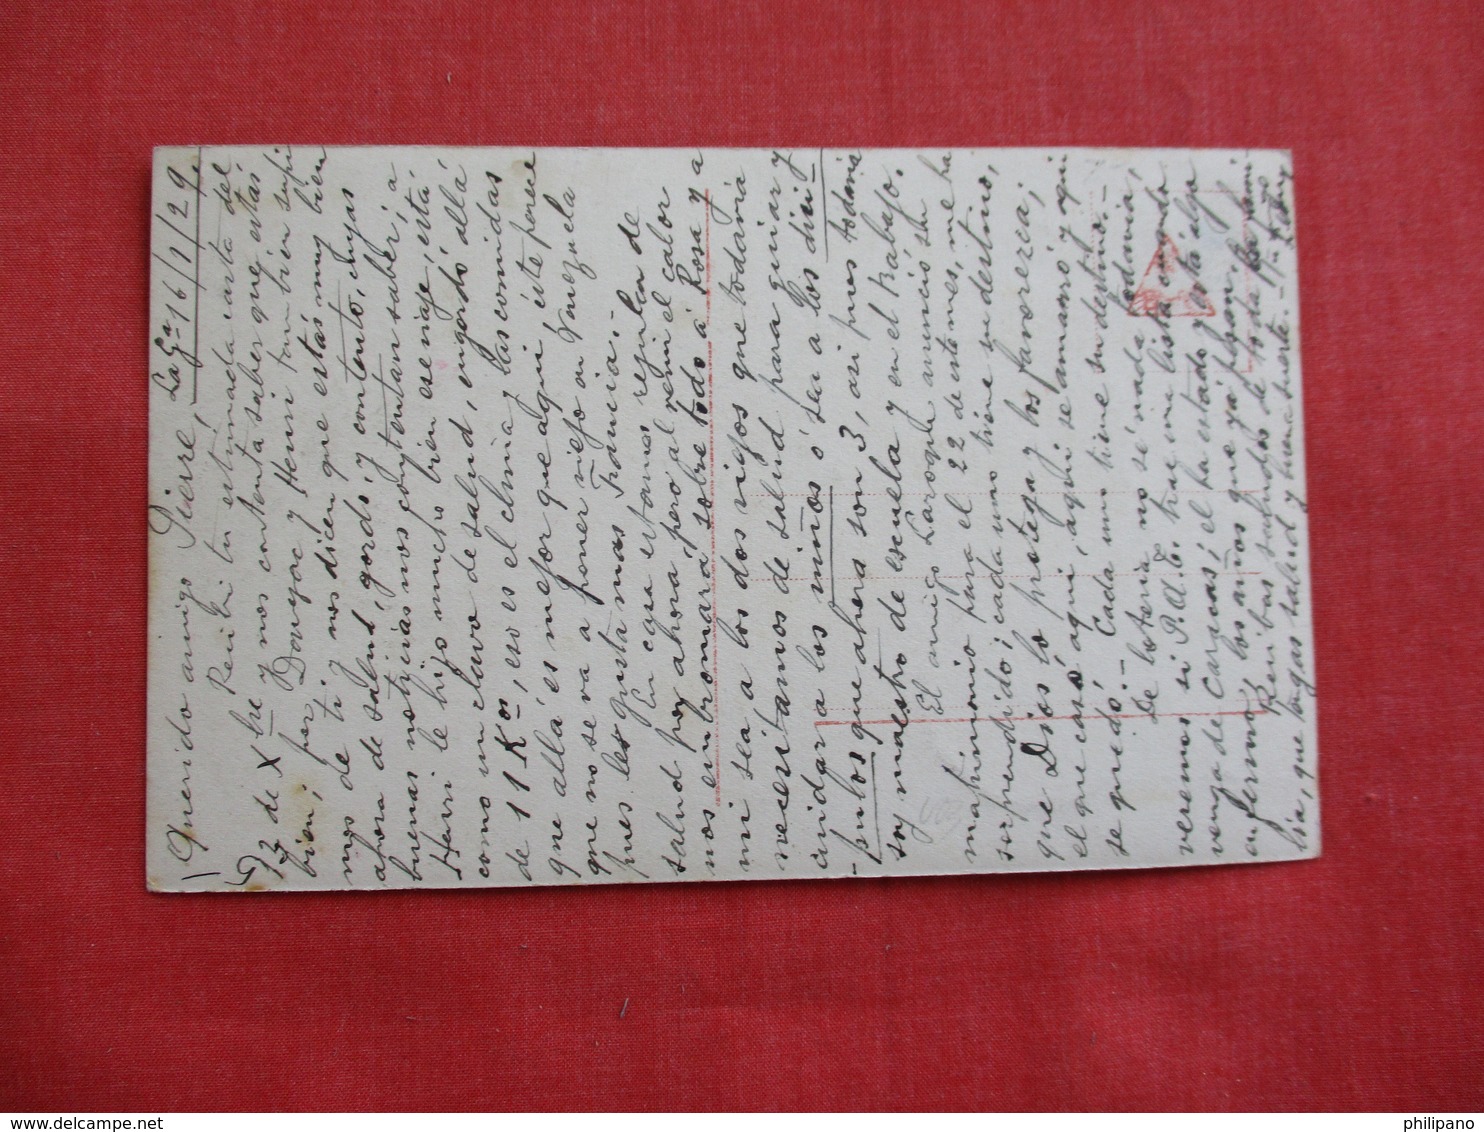 La Ga 16/1/29.
Querido amigo Pierre,
Recibi tu estimada carta del
27 de Xbre y nos contenta saber que estás
bien; por Donzac y Henri tambien supi
mos de ti y nos dicen que estás muy bien
ahora de salud, gordo, y contento, cuyas
buenas noticias nos contentan saber; a
Henri le hijo mucho bien ese viaje, está
como un clavo de salud, engordó allá
de 11 Kos, eso es el clima y las comidas
que allá es mejor que aqui, éste parece
que no se va a poner viejo en Venezuela
pues les gusta mas Francia.-
En casa estamos regular de
salud por ahora, pero al venir el calor
nos embromará sobre todo á Rosa y a
mi sea a los dos viejos que todavia
necesitamos de salud para guiar y
cuidar a los niños ó sea a los disci-
-pulos que ahora son 3, asi pues todavia
soy maestro de escuela y en el trabajo.
El amigo Laroque anunció su
matrimonio para el 22 de este mes, me ha
sorprendido; cada uno tiene su destino,
que Dios lo proteja y los favorezca;
el que casó aqui, aqui se amarró y aqui
se quedó.- Cada uno tiene su destino.-
De loteria no sé nada todavia,
veremos si P.A.G. trae una lista cuando
venga de Caracas; el ha estado y está algo
enfermo, los años que yá pesan.
Recibas saludos de toda la fami
lia, que tengas salud y buena suerte.-
philipano